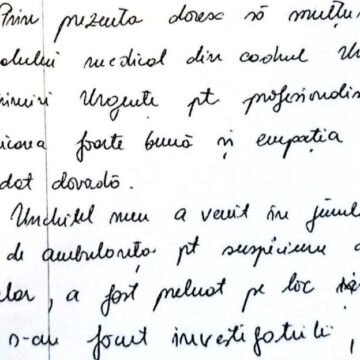 Prin prezenta doresc să mulțu
dului medical din cadrul Ur
imiri Urgențe pt profesionalis
icarea foarte bună și empatia
dat dovadă.
Unchiul meu a venit în jurul
de ambulanța pt suspiciune a
lor, a fost preluat pe loc
s-au făcut investigațiile,